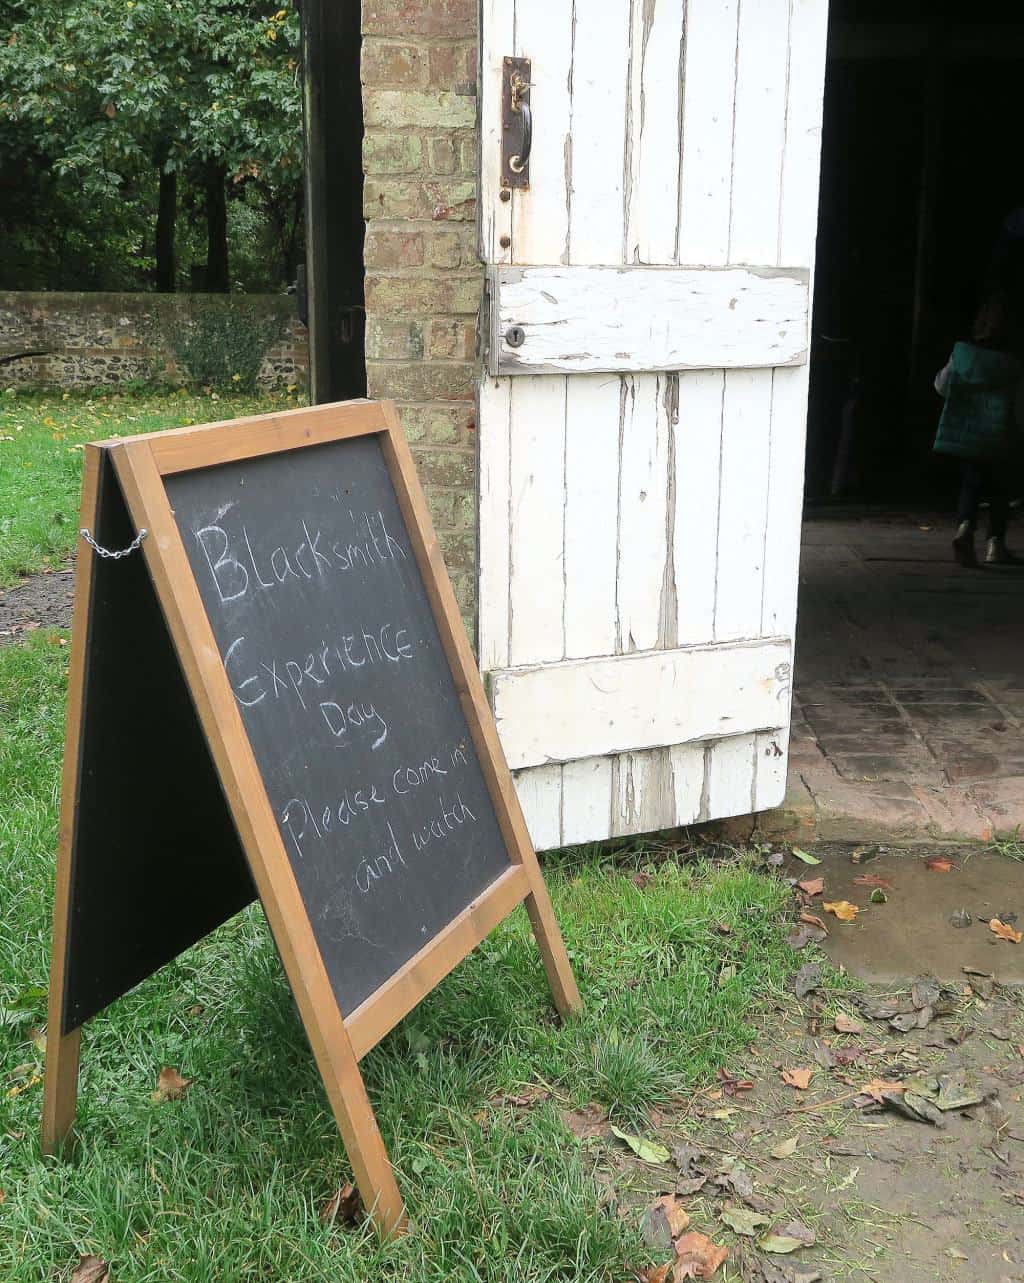 Blacksmith
Experience
Day
Please come in
and watch